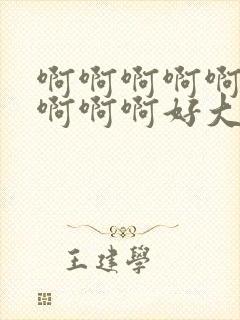 啊啊啊啊啊
啊啊啊好大
王建學